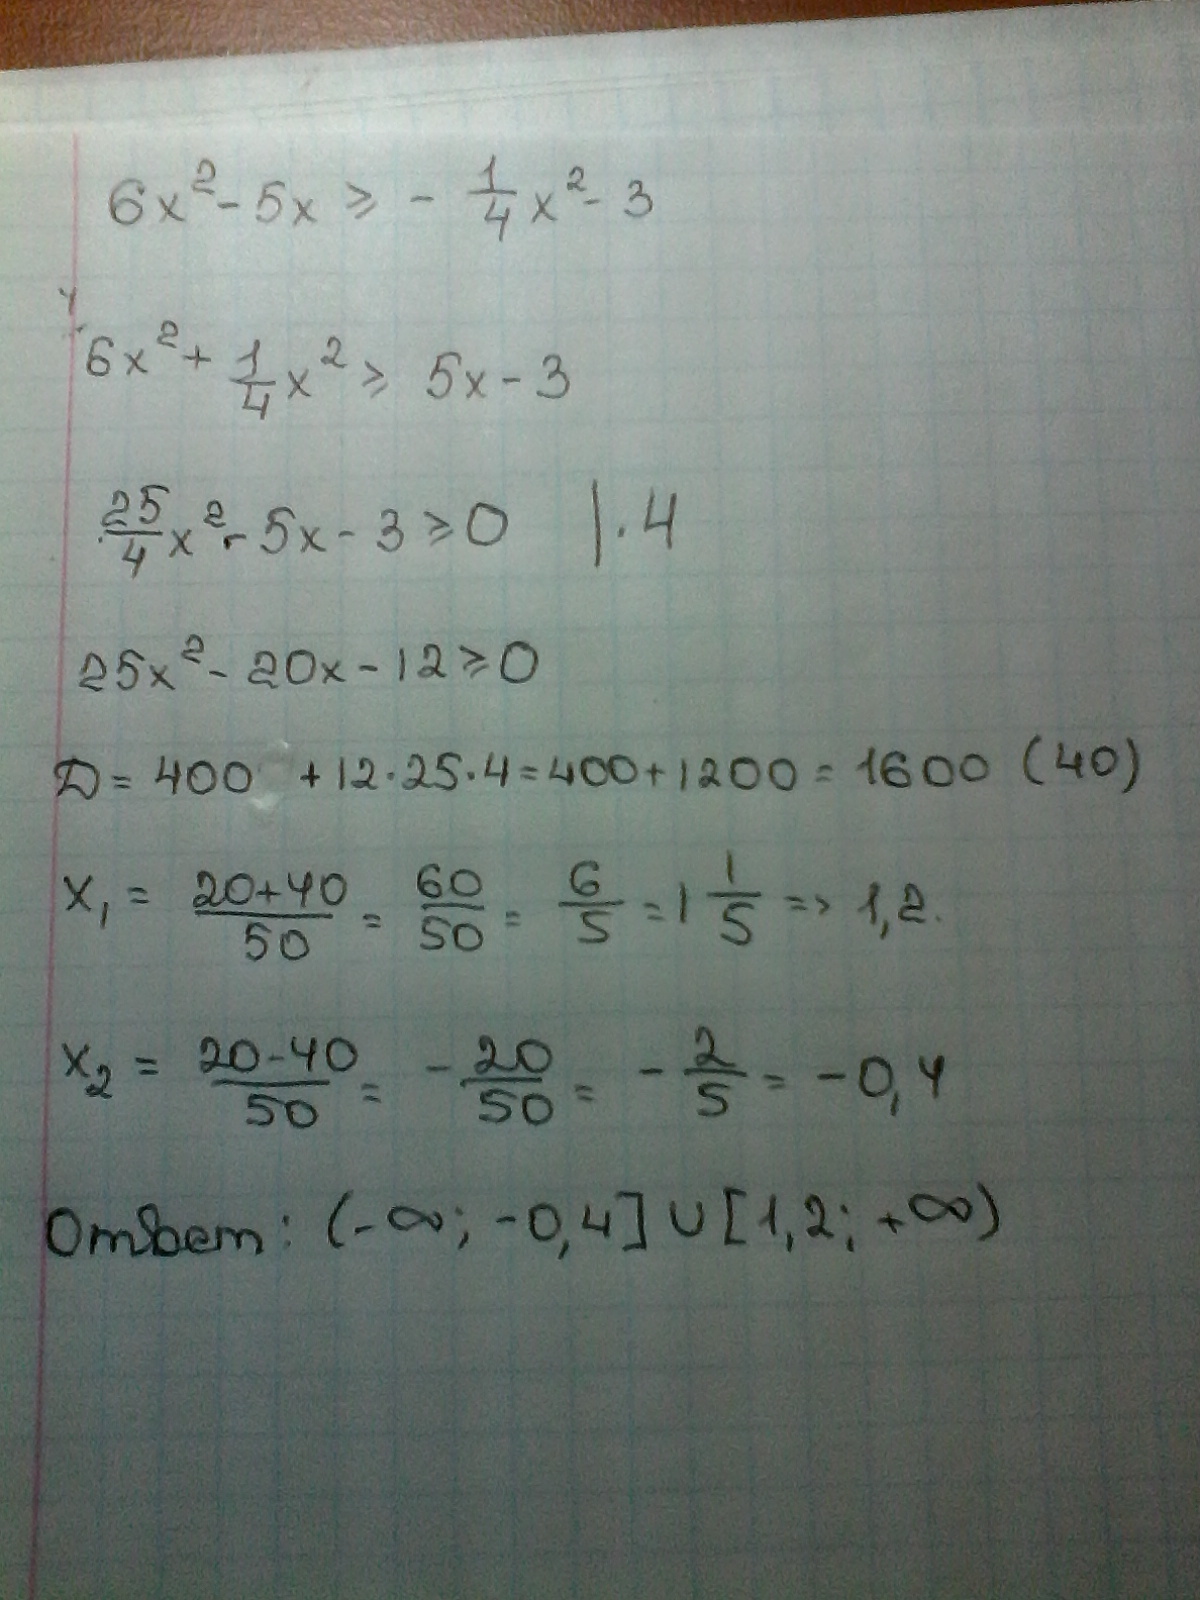 6x² - 5x ⩾ - 1/4 x² - 3
6x² + 1/4 x² ⩾ 5x - 3
25/4 x² - 5x - 3 ⩾ 0 | · 4
25x² - 20x - 12 ⩾ 0
D = 400 + 12 · 25 · 4 = 400 + 1200 = 1600 (40)
x₁ = (20+40)/50 = 60/50 = 6/5 = 1 1/5 => 1,2.
x₂ = (20-40)/50 = - 20/50 = - 2/5 = -0,4
Ответ: (-∞; -0,4] ∪ [1,2; +∞)